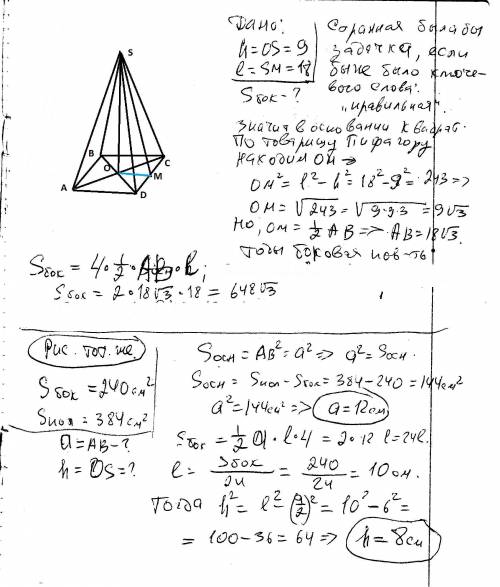 S
B
C
O
M
A
D
Дано:
h = OS = 9
l = SM = 18
Sбок - ?
Соранная была бы
задачка, если
бы не было ключе-
вого слова:
"правильная".
Значит в основании квадрат.
По товарищу Пифагору
находим ОМ →
OM² = l² - h² = 18² - 9² = 243 =>
OM = √243 = √9·9·3 = 9√3
Но, OM = ½ AB => AB = 18√3.
Тогда боковая пов-ть
Sбок = 4 · ½ · AB · l;
Sбок = 2 · 18√3 · 18 = 648√3
Рис. тот же.
Sбок = 240 см²
Sпол = 384 см²
a = AB - ?
h = OS = ?
Sосн = AB² = a² => a² = Sосн.
Sосн = Sпол - Sбок = 384 - 240 = 144 см²
a² = 144 см² => a = 12 см
Sбок = ½ a · l · 4 = 2 · 12 l = 24l.
l = Sбок/24 = 240/24 = 10 см.
Тогда h² = l² - (a/2)² = 10² - 6² =
= 100 - 36 = 64 => h = 8 см